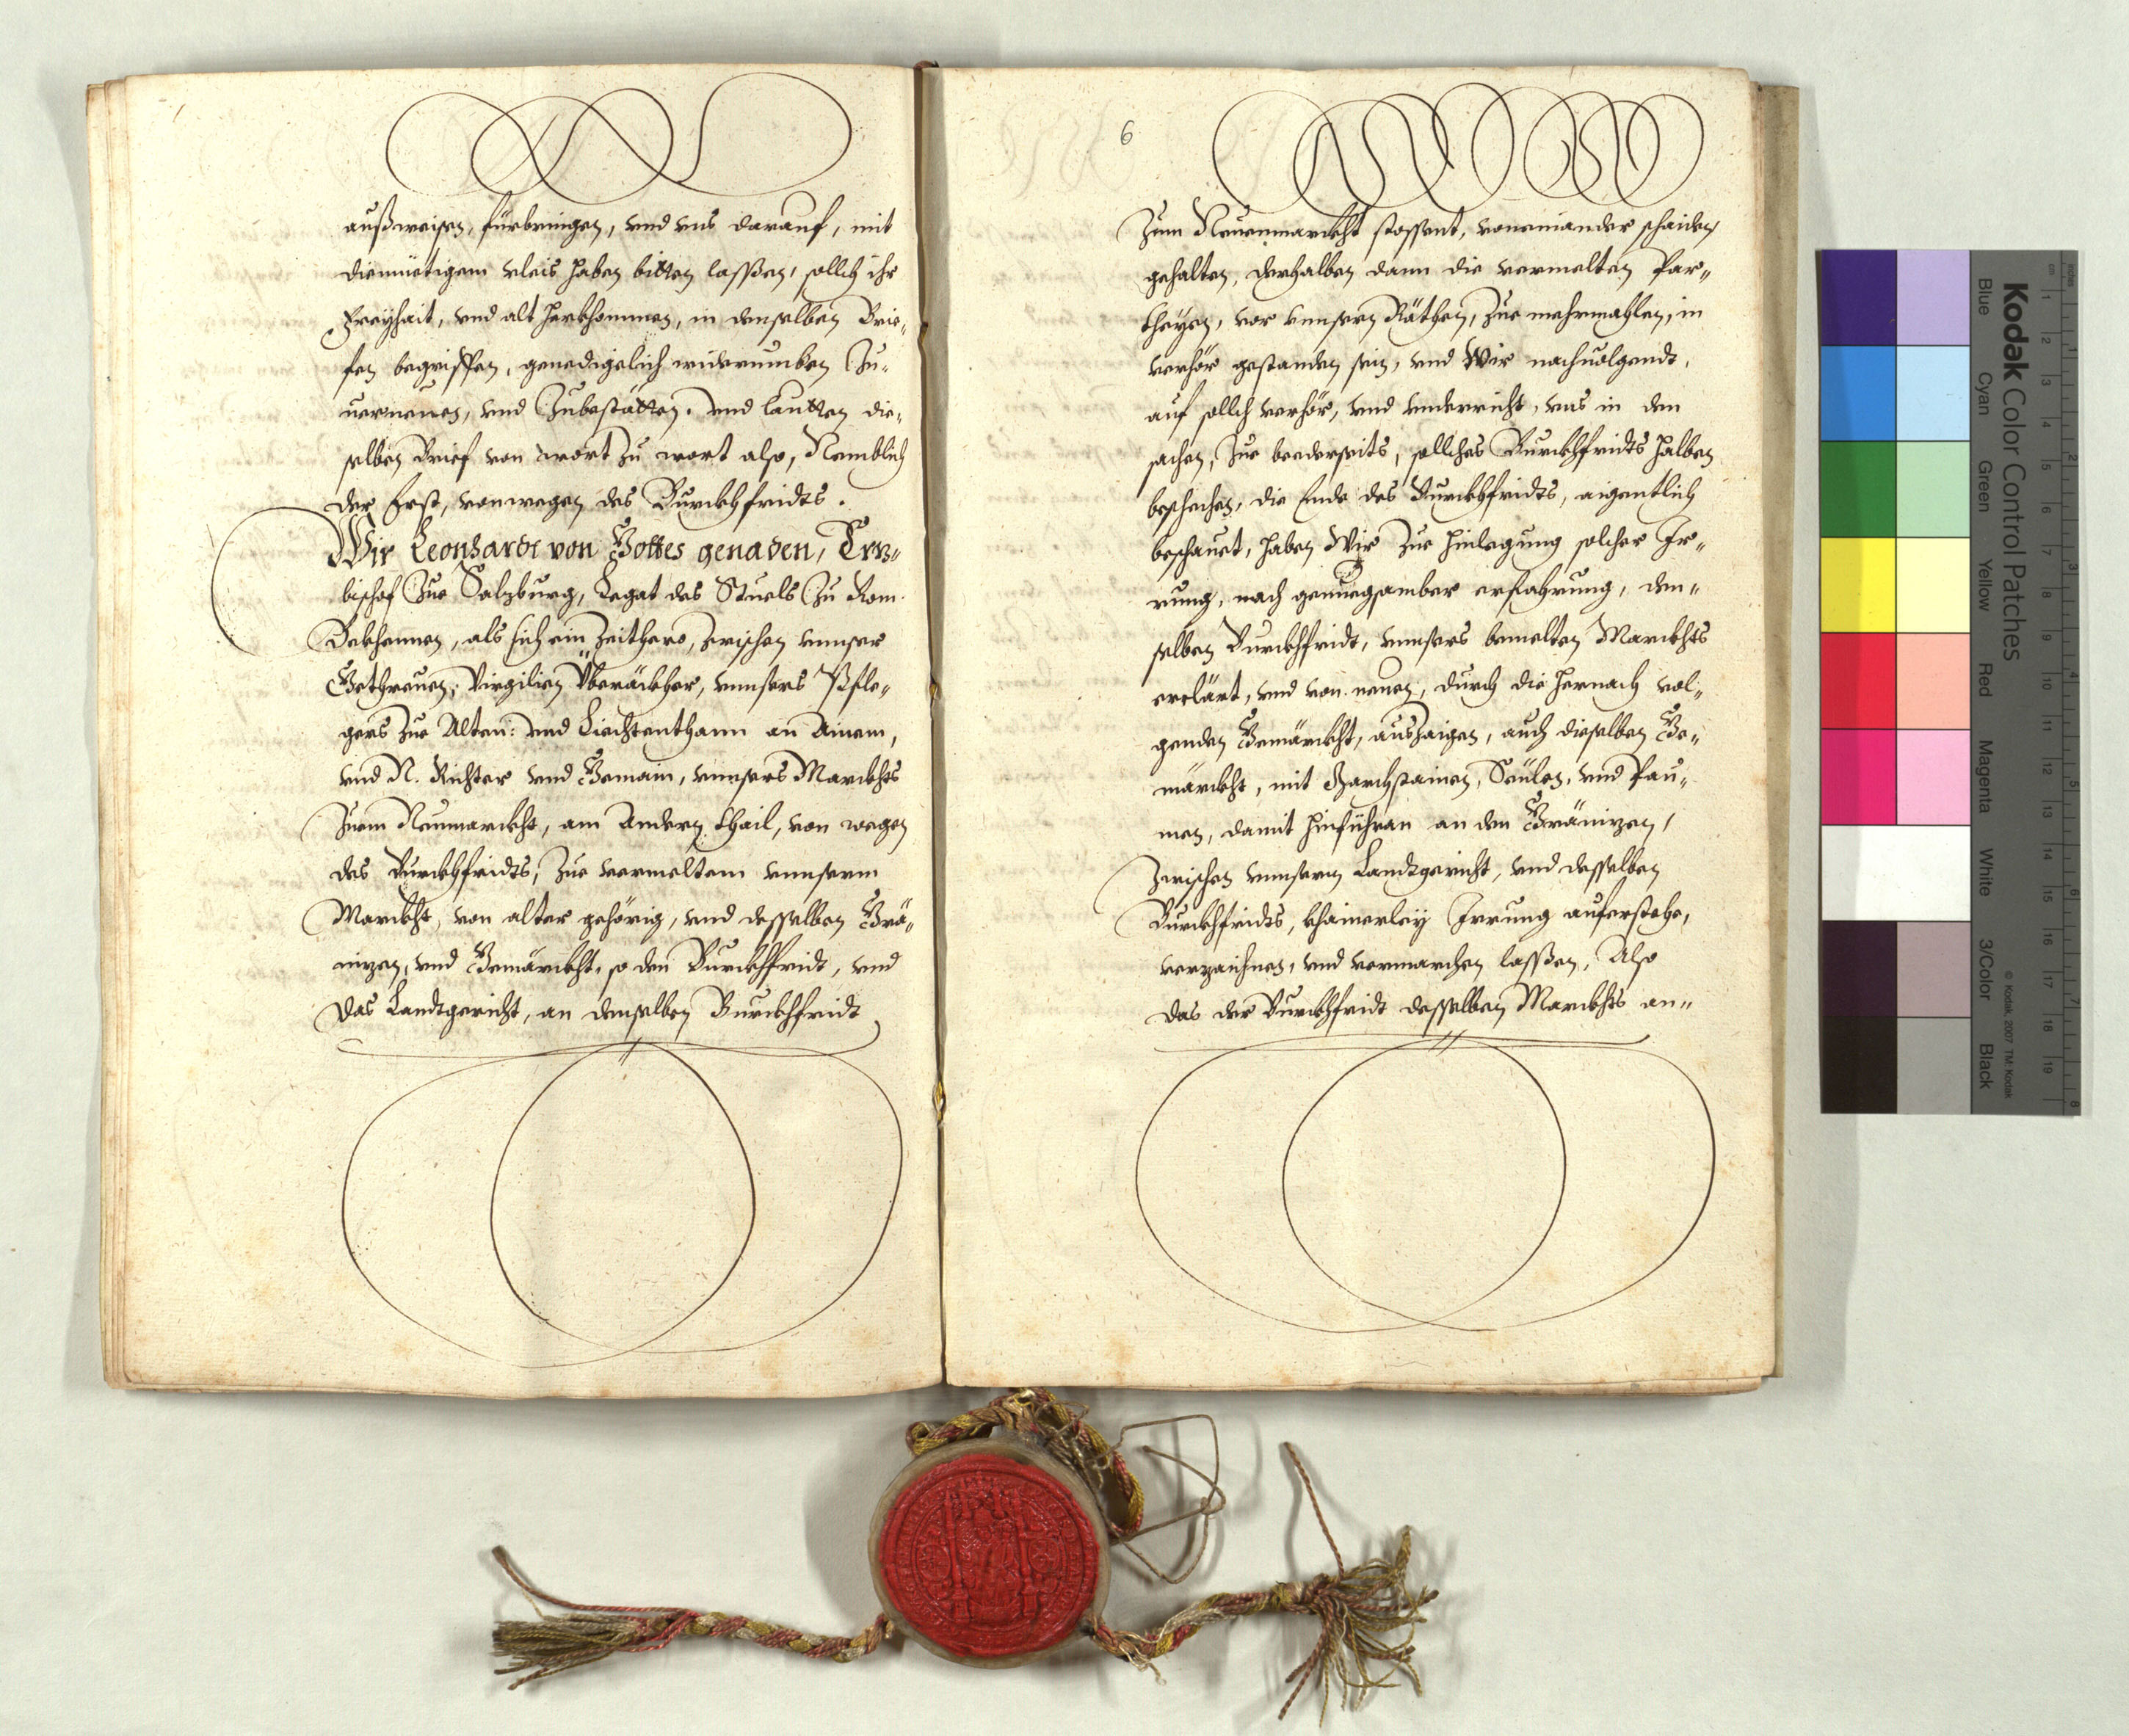 außweisen, fürbringen, vnd vns darauf, mit
diemüetigem vleis haben bitten lassen, sollch ihr
Freÿhait, vnd alt herkhommen, in denselben Brie„
fen begriffen, genedigelich widerumben Zu„
uerneuen, vnd Zubestätten. Vnd lautten die„
selben Brief von wort zu wort also, Nemblich
der Erst, vonwegen des Burckhfridts.
Wir Leonhardt von Gottes genaden, Erz„
bischof Zue Salzburg, Legat des Stuels Zu Rom.
Bekhennen, als sich ein Zeithero, zwischen vnnser
Gethreuen, Virgilien Überäckher, vnnsers Pfle„
gers Zue Alten: vnd Liechtenthann an Ainem,
vnd N. Richter vnd Gemain, vnnsers Marckhts
Zuem Neumarckht, am Andern thail, von wegen
des Burckhfridts, Zue vermeltem vnnserm
Marckht, von alter gehörig, vnd desselben Grä„
nizen, vnd Gemärckht, so den Burckhfridt, vnd
das Landtgericht, an demselben Burckhfridt
6
Zum Neuenmarckht stossent, voneinander schaiden,
gehalten, derhalben dann die vermelten Par„
theyen, vor vnnsern Räthen, Zue mehrmahlen, in
verhör gestanden sein, vnd Wir nachuolgendt,
auf sollch verhör, vnd vnderricht, vns in den
sachen, Zue beederseits, sollches Burckhfridts halben
beschehen, die Ende des Burckhfridts, aigentlich
beschauet, haben Wir Zue hinlegung solcher Ir„
rung, nach genuegsamber erfahrung, den„
selben Burckhfridt, vnnsers bemelten Marckhts
erclärt, vnd von neuen, durch die hernach vol„
genden Gemärckht, auszaigen, auch dieselben Ge„
märckht, mit Marchstainen, Seülen, vnd Pau„
men, damit hinführan an den Gränizen,
Zwischen vnnserm Landtgericht, vnd desselben
Burckhfridts, khainerley Irrung auferstehe,
verzaichnen, vnd vermarchen lassen, Also
das der Burckhfridt desselben Marckhts an„
Kodak Color Control Patches
Blue Cyan Green Yellow Red Magenta White 3/Color Black
© Kodak, 2007 TM: Kodak
cm 1 2 3 4 5 6 7 8 9 10 11 12 13 14 15 16 17 18 19
inches 1 2 3 4 5 6 7 8